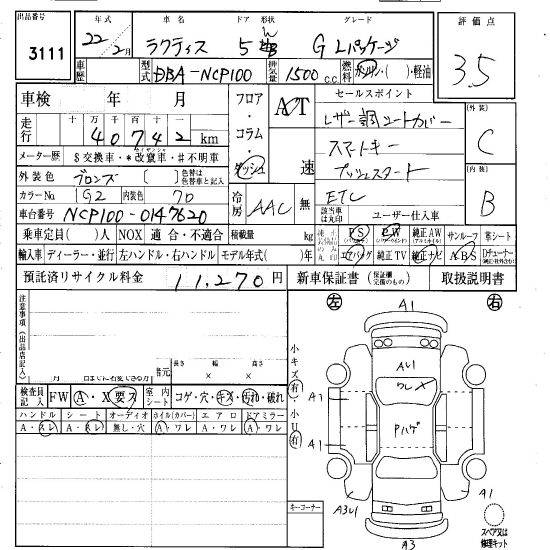 出品番号 3111
年式 22年 2月
車名 ラクティス
ドア形状 5
グレード G Lパッケージ
評価点 3.5
車歴
型式 DBA-NCP100
排気量 1500 c.c.
燃料 ガソリン・( )・軽油
車検 年 月
フロア・コラム・ダッシュ
A/T 速
セールスポイント
レザー調シートカバー
スマートキー
プッシュスタート
ETC
外装 C
内装 B
走行 十 万 千 百 十 一
40742 km
メーター歴 $交換車・*改竄車・#不明車
外装色 ブロンズ [ ] 色替車は元色替を記入
カラーNo. 1G2 内装色 70
車台番号 NCP100-0147620
冷房 AAC 無
該当車は丸印 ユーザー仕入車
乗車定員( )人 NOX 適合・不適合 積載量 kg
PS PW 純正AW サンルーフ 革シート
輸入車 ディーラー・並行 左ハンドル・右ハンドル モデル年式( )年
エアバッグ 純正TV 純正ナビ ABS
預託済リサイクル料金 11,270円
新車保証書 取扱説明書
注意事項(出品店記入)
長さ 幅 高さ
× ×
検査員記入 FW A・X 要ス 室内シート コゲ・穴・キズ・汚れ・破れ
ハンドル シート オーディオ ホイル(カバー) エアロ ドアミラー
A・スレ A・スレ 無し・穴 A・ワレ A・ワレ A・ワレ
小キズ有 小U有
キーコーナー
左 A1 右
AU1
ワレX
A1
Pハゲ
A1
A3U1
A1
A3
スペア又は修理キット